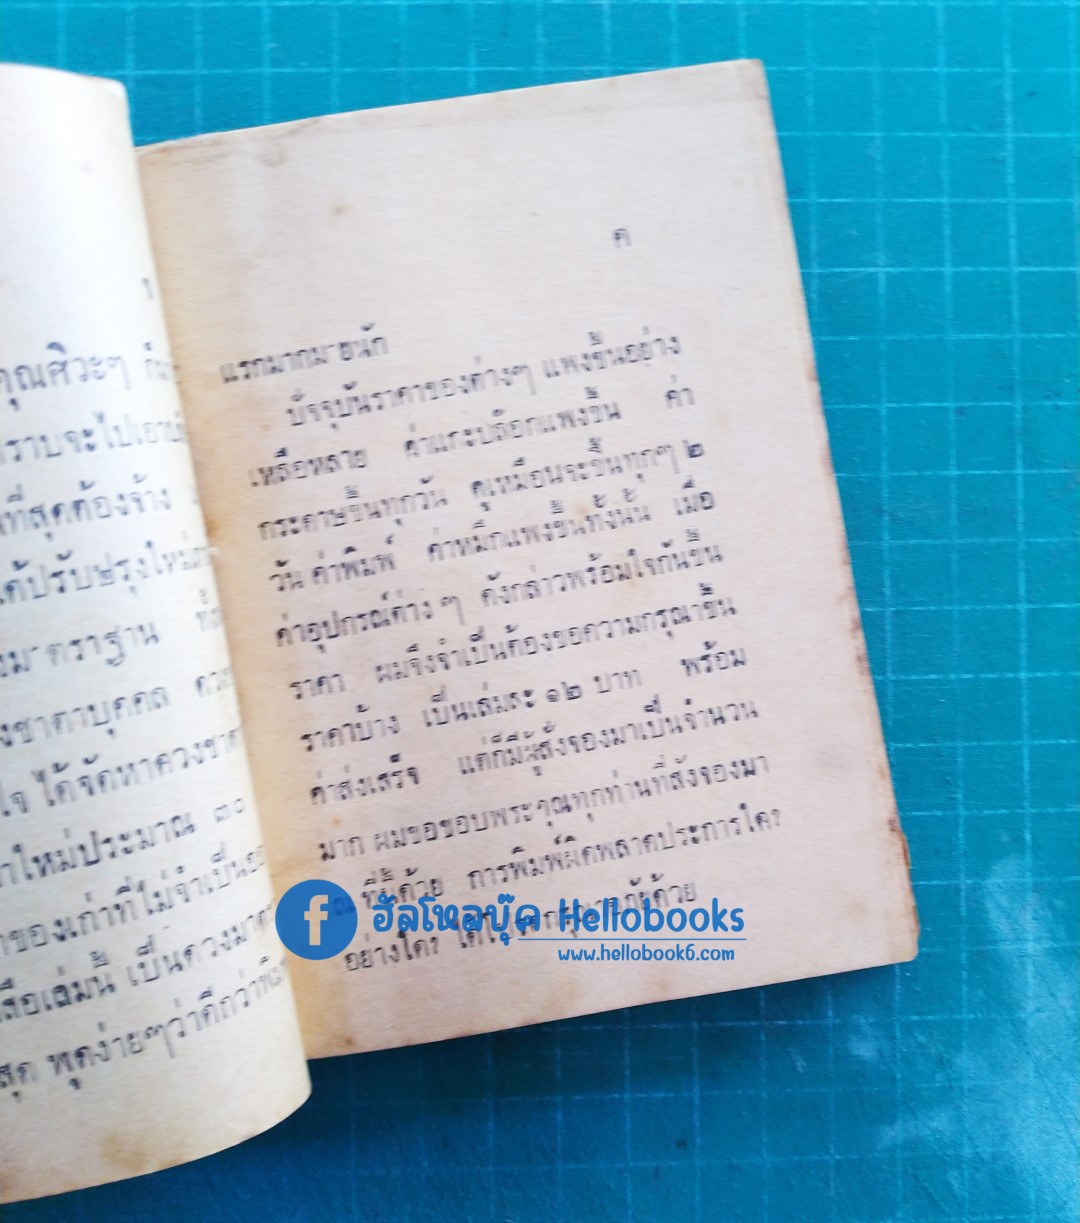 คุณศิวะๆ
ราบจะไปเอา
ที่สุดต้องจ้าง
ได้ปรับปรุงใหม่
มาตราฐาน
ชาตาบุคคล
ใจ ได้จัดหาดวงชาตา
ใหม่ประมาณ ๓๐
ของเก่าที่ไม่จำเป็น
เล่มนี้ เป็นดวงมาตรา
สุด พูดง่ายๆว่าดีกว่า
ค
แรกมากมายนัก
ปัจจุบันราคาของต่างๆ แพงขึ้นอย่าง
เหลือหลาย ค่าแกะบล๊อกแพงขึ้น ค่า
กระดาษขึ้นทุกวัน ดูเหมือนจะขึ้นทุกๆ ๒
วัน ค่าพิมพ์ ค่าหมึกแพงขึ้นทั้งนั้น เมื่อ
ค่าอุปกรณ์ต่าง ๆ ดังกล่าวพร้อมใจกันขึ้น
ราคา ผมจึงจำเป็นต้องขอความกรุณาขึ้น
ราคาบ้าง เป็นเล่มละ ๑๒ บาท พร้อม
ค่าส่งเสร็จ แต่ก็มีผู้สั่งจองมาเป็นจำนวน
มาก ผมขอขอบพระคุณทุกท่านที่สั่งจองมา
ณ ที่นี้ด้วย การพิมพ์ผิดพลาดประการใด?
อย่างใด? ด้วย
ฮัลโหลบุ๊ค Hellobooks
www.hellobook6.com